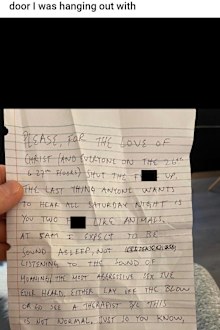 door I was hanging out with
PLEASE, FOR THE LOVE OF
CHRIST (AND EVERYONE ON THE 26TH
& 27TH FLOORS) SHUT THE F UP.
THE LAST THING ANYONE WANTS
TO HEAR ALL SATURDAY NIGHT IS
YOU TWO F LIKE ANIMALS.
AT 5AM I EXPECT TO BE
SOUND ASLEEP, NOT
LISTENING TO THE SOUND OF
MOANING, THE MOST AGGRESSIVE SEX I'VE
EVER HEARD, EITHER LAY OFF THE BLOW
OR GO SEE A THERAPIST B/C THIS
IS NOT NORMAL, JUST SO YOU KNOW,